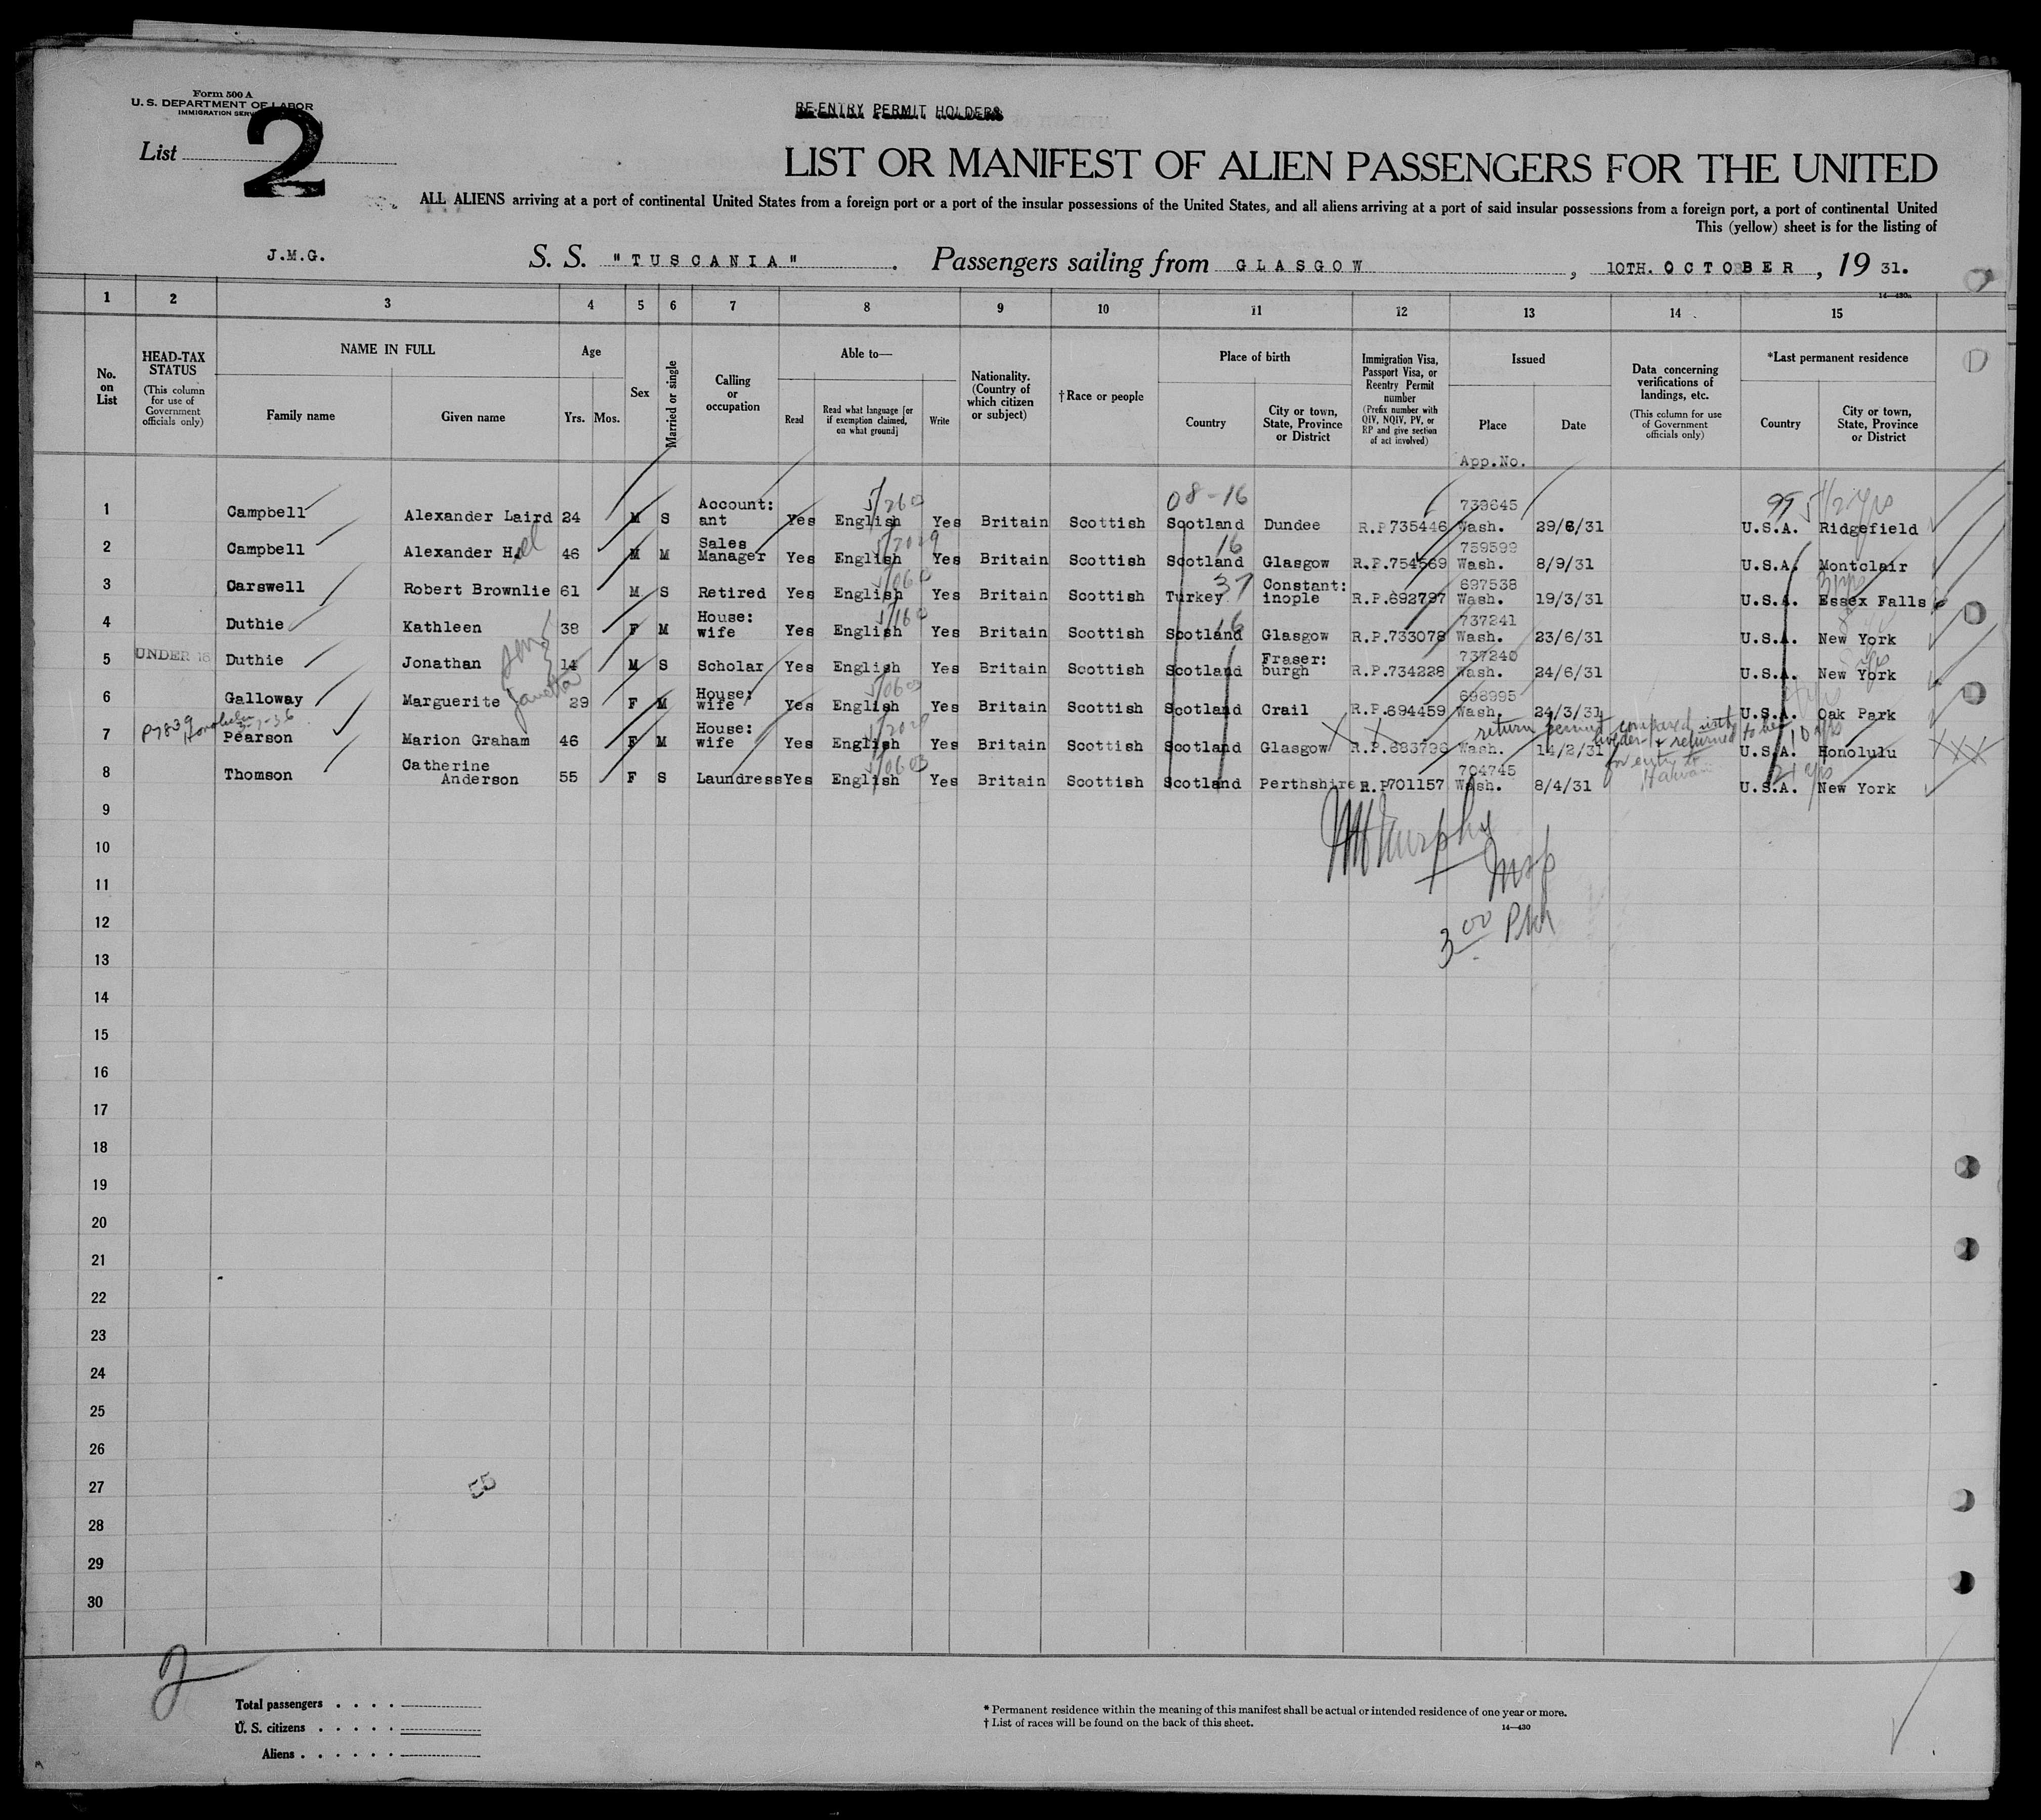 Form 500 A
U. S. DEPARTMENT OF LABOR
IMMIGRATION SERV
List 2
RE-ENTRY PERMIT HOLDERS
LIST OR MANIFEST OF ALIEN PASSENGERS FOR THE UNITED
ALL ALIENS arriving at a port of continental United States from a foreign port or a port of the insular possessions of the United States, and all aliens arriving at a port of said insular possessions from a foreign port, a port of continental United
This (yellow) sheet is for the listing of
J.M.G. S. S. "TUSCANIA" . Passengers sailing from GLASGOW , 10TH. OCTOBER , 19 31.
14—430a
1 2 3 4 5 6 7 8 9 10 11 12 13 14 15
No. on List
HEAD-TAX STATUS (This column for use of Government officials only)
NAME IN FULL
Family name Given name
Age
Yrs. Mos.
Sex
Married or single
Calling or occupation
Able to—
Read Read what language [or if exemption claimed, on what ground] Write
Nationality. (Country of which citizen or subject)
†Race or people
Place of birth
Country City or town, State, Province or District
Immigration Visa, Passport Visa, or Reentry Permit number (Prefix number with QIV, NQIV, PV, or RP and give section of act involved)
Issued
Place Date
App.No.
Data concerning verifications of landings, etc. (This column for use of Government officials only)
*Last permanent residence
Country City or town, State, Province or District
08-16 99 5 1/2 yrs
1 Campbell Alexander Laird 24 M S Account: ant Yes English Yes Britain Scottish Scotland Dundee R.P735446 739645 Wash. 29/6/31 U.S.A. Ridgefield
2 Campbell Alexander H. 46 M M Sales Manager Yes English Yes Britain Scottish Scotland 16 Glasgow R.P.754569 759599 Wash. 8/9/31 U.S.A. Montclair
3 Carswell Robert Brownlie 61 M S Retired Yes English Yes Britain Scottish Turkey 37 Constant: inople R.P.692797 697538 Wash. 19/3/31 U.S.A. Essex Falls
4 Duthie Kathleen 38 F M House: wife Yes English Yes Britain Scottish Scotland 16 Glasgow R.P.733078 737241 Wash. 23/6/31 U.S.A. New York
5 UNDER 16 Duthie Jonathan 14 M S Scholar Yes English Yes Britain Scottish Scotland Fraser: burgh R.P.734228 737240 Wash. 24/6/31 U.S.A. New York
6 Galloway Marguerite Janetta 29 F M House: wife Yes English Yes Britain Scottish Scotland Crail R.P.694459 698995 Wash. 24/3/31 U.S.A. Oak Park
P7839 Honolulu 3-7-36
return permit compared with holder & returned to her for entry to Hawaii
7 Pearson Marion Graham 46 F M House: wife Yes English Yes Britain Scottish Scotland Glasgow R.P.683796 Wash. 14/2/31 U.S.A. 10 yrs Honolulu XXX
8 Thomson Catherine Anderson 55 F S Laundress Yes English Yes Britain Scottish Scotland Perthshire R.P701157 704745 Wash. 8/4/31 U.S.A. New York
9
10 Murphy
11
12
13 3 00 PM
14
15
16
17
18
19
20
21
22
23
24
25
26
27 55
28
29
30
2
Total passengers . . . .
U. S. citizens . . . . .
Aliens . . . . . .
* Permanent residence within the meaning of this manifest shall be actual or intended residence of one year or more.
† List of races will be found on the back of this sheet.
14—430